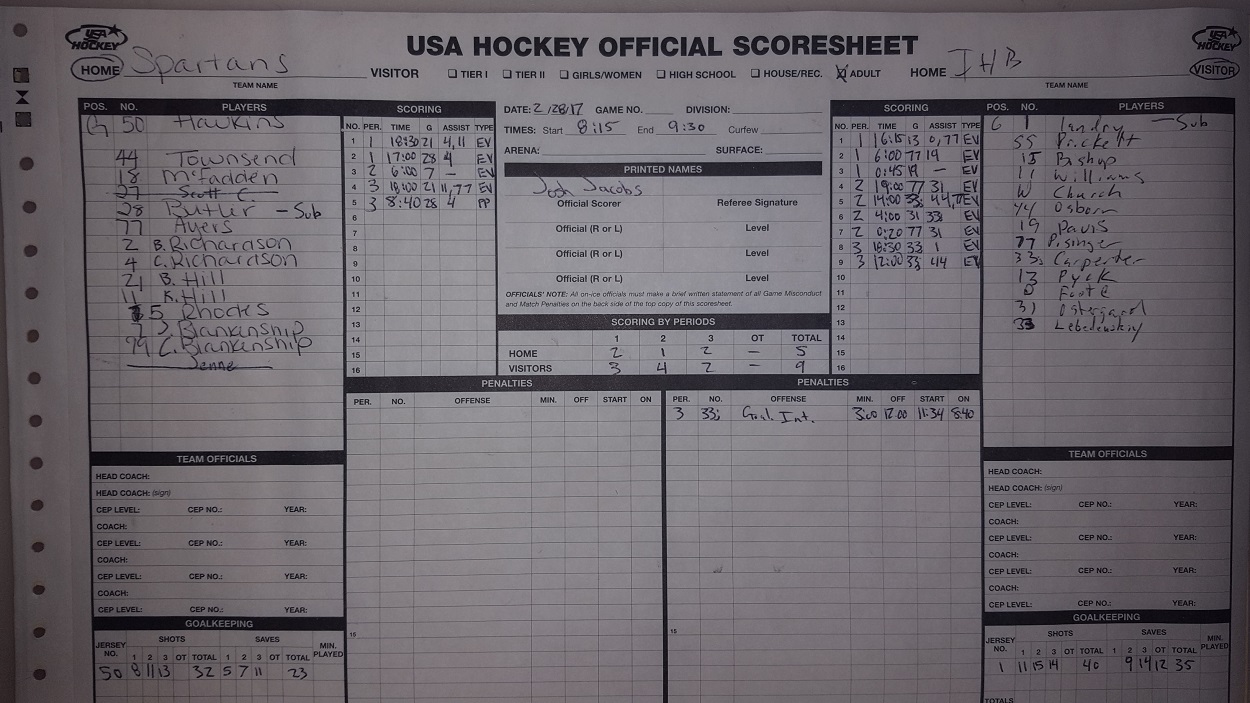 USA HOCKEY
USA HOCKEY OFFICIAL SCORESHEET
USA HOCKEY
HOME Spartans VISITOR ☐ TIER I ☐ TIER II ☐ GIRLS/WOMEN ☐ HIGH SCHOOL ☐ HOUSE/REC. ☒ ADULT HOME IHB VISITOR
TEAM NAME TEAM NAME
POS. NO. PLAYERS
G 50 Hawkins
44 Townsend
18 McFadden
27 Scott C.
28 Butler - Sub
77 Ayers
2 B. Richardson
4 C. Richardson
21 B. Hill
11 K. Hill
5 Rhodes
7 J. Blankenship
79 C. Blankenship
Jenne
SCORING
NO. PER. TIME G ASSIST TYPE
1 1 18:30 21 4,11 EV
2 1 17:00 28 4 EV
3 2 6:00 7 - EV
4 3 18:00 21 11,77 EV
5 3 8:40 28 4 PP
6
7
8
9
10
11
12
13
14
15
16
DATE: 2/28/17 GAME NO. DIVISION:
TIMES: Start 8:15 End 9:30 Curfew
ARENA: SURFACE:
PRINTED NAMES
Josh Jacobs
Official Scorer Referee Signature
Official (R or L) Level
Official (R or L) Level
Official (R or L) Level
OFFICIALS' NOTE: All on-ice officials must make a brief written statement of all Game Misconduct
and Match Penalties on the back side of the top copy of this scoresheet.
SCORING BY PERIODS
1 2 3 OT TOTAL
HOME 2 1 2 - 5
VISITORS 3 4 2 - 9
SCORING
NO. PER. TIME G ASSIST TYPE
1 1 16:15 13 0,77 EV
2 1 6:00 77 19 EV
3 1 0:45 19 - EV
4 2 19:00 77 31 EV
5 2 14:00 33j 44, EV
6 2 4:00 31 33j EV
7 2 0:20 77 31 EV
8 3 18:30 33 1 EV
9 3 12:00 33j 44 EV
10
11
12
13
14
15
16
POS. NO. PLAYERS
G 1 Landry - Sub
55 Prickett
15 Bishup
11 Williams
W Church
44 Osborn
19 Davis
77 Pisinger
33j Carpenter
13 Pyck
0 Foote
31 Ostergard
33 Lebedowskiy
PENALTIES
PER. NO. OFFENSE MIN. OFF START ON
15
PENALTIES
PER. NO. OFFENSE MIN. OFF START ON
3 33j Goal. Int. 3:00 12:00 11:34 8:40
15
TEAM OFFICIALS
HEAD COACH:
HEAD COACH: (sign)
CEP LEVEL: CEP NO.: YEAR:
COACH:
CEP LEVEL: CEP NO.: YEAR:
COACH:
CEP LEVEL: CEP NO.: YEAR:
COACH:
CEP LEVEL: CEP NO.: YEAR:
GOALKEEPING
JERSEY NO. SHOTS SAVES MIN. PLAYED
1 2 3 OT TOTAL 1 2 3 OT TOTAL
50 8 11 13 32 5 7 11 23
TEAM OFFICIALS
HEAD COACH:
HEAD COACH: (sign)
CEP LEVEL: CEP NO.: YEAR:
COACH:
CEP LEVEL: CEP NO.: YEAR:
COACH:
CEP LEVEL: CEP NO.: YEAR:
COACH:
CEP LEVEL: CEP NO.: YEAR:
GOALKEEPING
JERSEY NO. SHOTS SAVES MIN. PLAYED
1 2 3 OT TOTAL 1 2 3 OT TOTAL
1 11 15 14 40 9 14 12 35
TOTALS